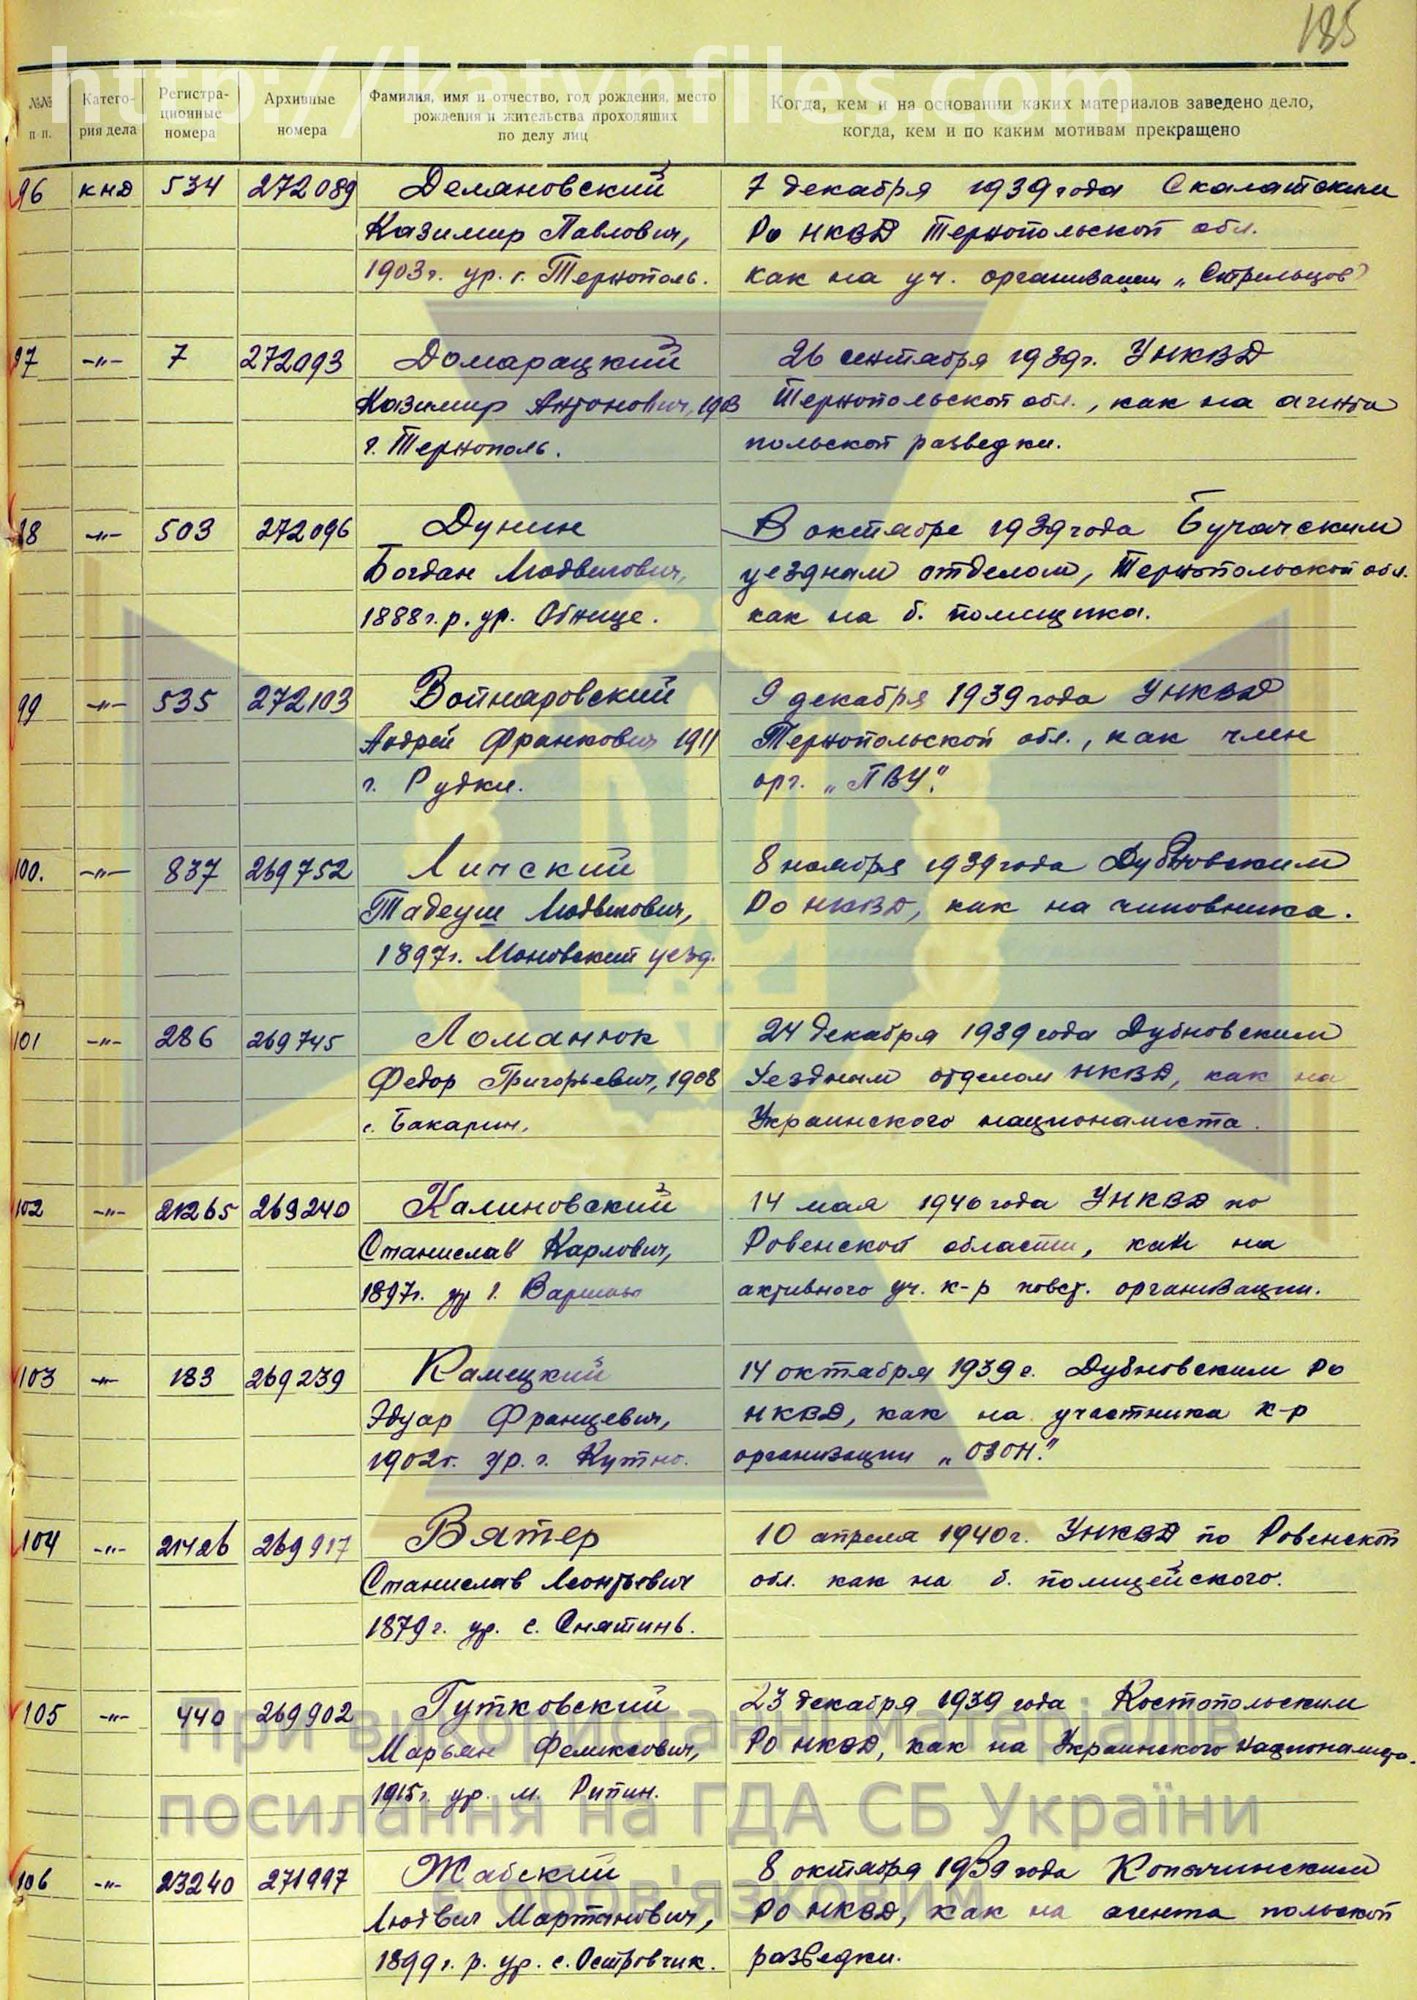 185
http://katynfiles.com
№№ п п.
Катего-
рия дела
Регистра-
ционные
номера
Архивные
номера
Фамилия, имя и отчество, год рождения, место
рождения и жительства проходящих
по делу лиц
Когда, кем и на основании каких материалов заведено дело,
когда, кем и по каким мотивам прекращено
96 кнд 534 272089 Делановский 7 декабря 1939 года Скалатским
Казимир Павлович, Ро НКВД Тернопольской обл.
1903 г. ур. г. Тернополь. как на уч. организации „Стрельцов"
97 -"- 7 272093 Домарацкий 26 сентября 1939г. УНКВД
Казимир Антонович, 1903 Тернопольской обл., как на агента
г. Тернополь. польской разведки.
98 -"- 503 272096 Дунин В октябре 1939 года Бучачским
Богдан Людвигович, уездным отделом, Тернопольской обл.
1888 г. р. ур. как на б. помещика.
99 -"- 535 272103 Войнаровский 9 декабря 1939 года УНКВД
Андрей Франкович 1911 Тернопольской обл., как член
г. Рудки. орг. „ПВУ".
100. -"- 837 269752 Линский 8 ноября 1939 года Дубновским
Тадеуш Людвигович, Ро НКВД, как на чиновника.
1897г. уезд.
101 -"- 286 269745 Ломанюк 24 декабря 1939 года Дубновским
Федор Григорьевич, 1908 Уездным отделом НКВД, как на
с. Бакарин. Украинского националиста.
102 -"- 21265 269240 Калиновский 14 мая 1940 года УНКВД по
Станислав Карлович, Ровенской области, как на
1897г. ур г. Варшавы активного уч. к-р повст. организации.
103 -"- 183 269239 Камецкий 14 октября 1939 г. Дубновским Ро
Эдуар Францевич, НКВД, как на участника к-р
1902г. ур. г. Кутно. организации „ОЗОН."
104 -"- 21426 269917 Вятер 10 апреля 1940 г. УНКВД по Ровенской
Станислав Леонтьевич обл. как на б. полицейского.
1879 г. ур. с. Снятинь.
105 -"- 440 269902 Гутковский 23 декабря 1939 года Костопольским
Марьян Феликсович, РО НКВД, как на Украинского националиста.
1915г. ур. м. Рипин.
106 -"- 23240 271997 Жабский 8 октября 1939 года Копачинским
Людвиг Мартинович, РО НКВД, как на агента польской
1899 г. р. ур. с. Островчик. разведки.
При використанні матеріалів
посилання на ГДА СБ України
є обов'язковим